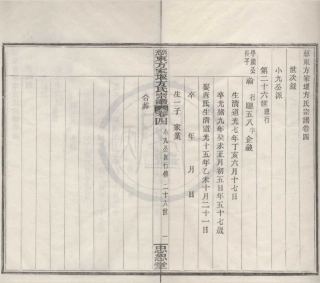 慈東方家堰方氏宗譜卷四
世次錄
小九公派
第二十六世 題行
學圃公長子 論 行題五八 字金箴
生清道光七年丁亥六月十七日
卒光緒九年癸未正月初五日年五十七歲
娶袁氏生清道光十五年乙未十月二十一日
卒 年 月 日
生一子 家業
合葬
慈東方家堰方氏宗譜 卷四 小九公派行傳 二十六世 一 忠懿堂